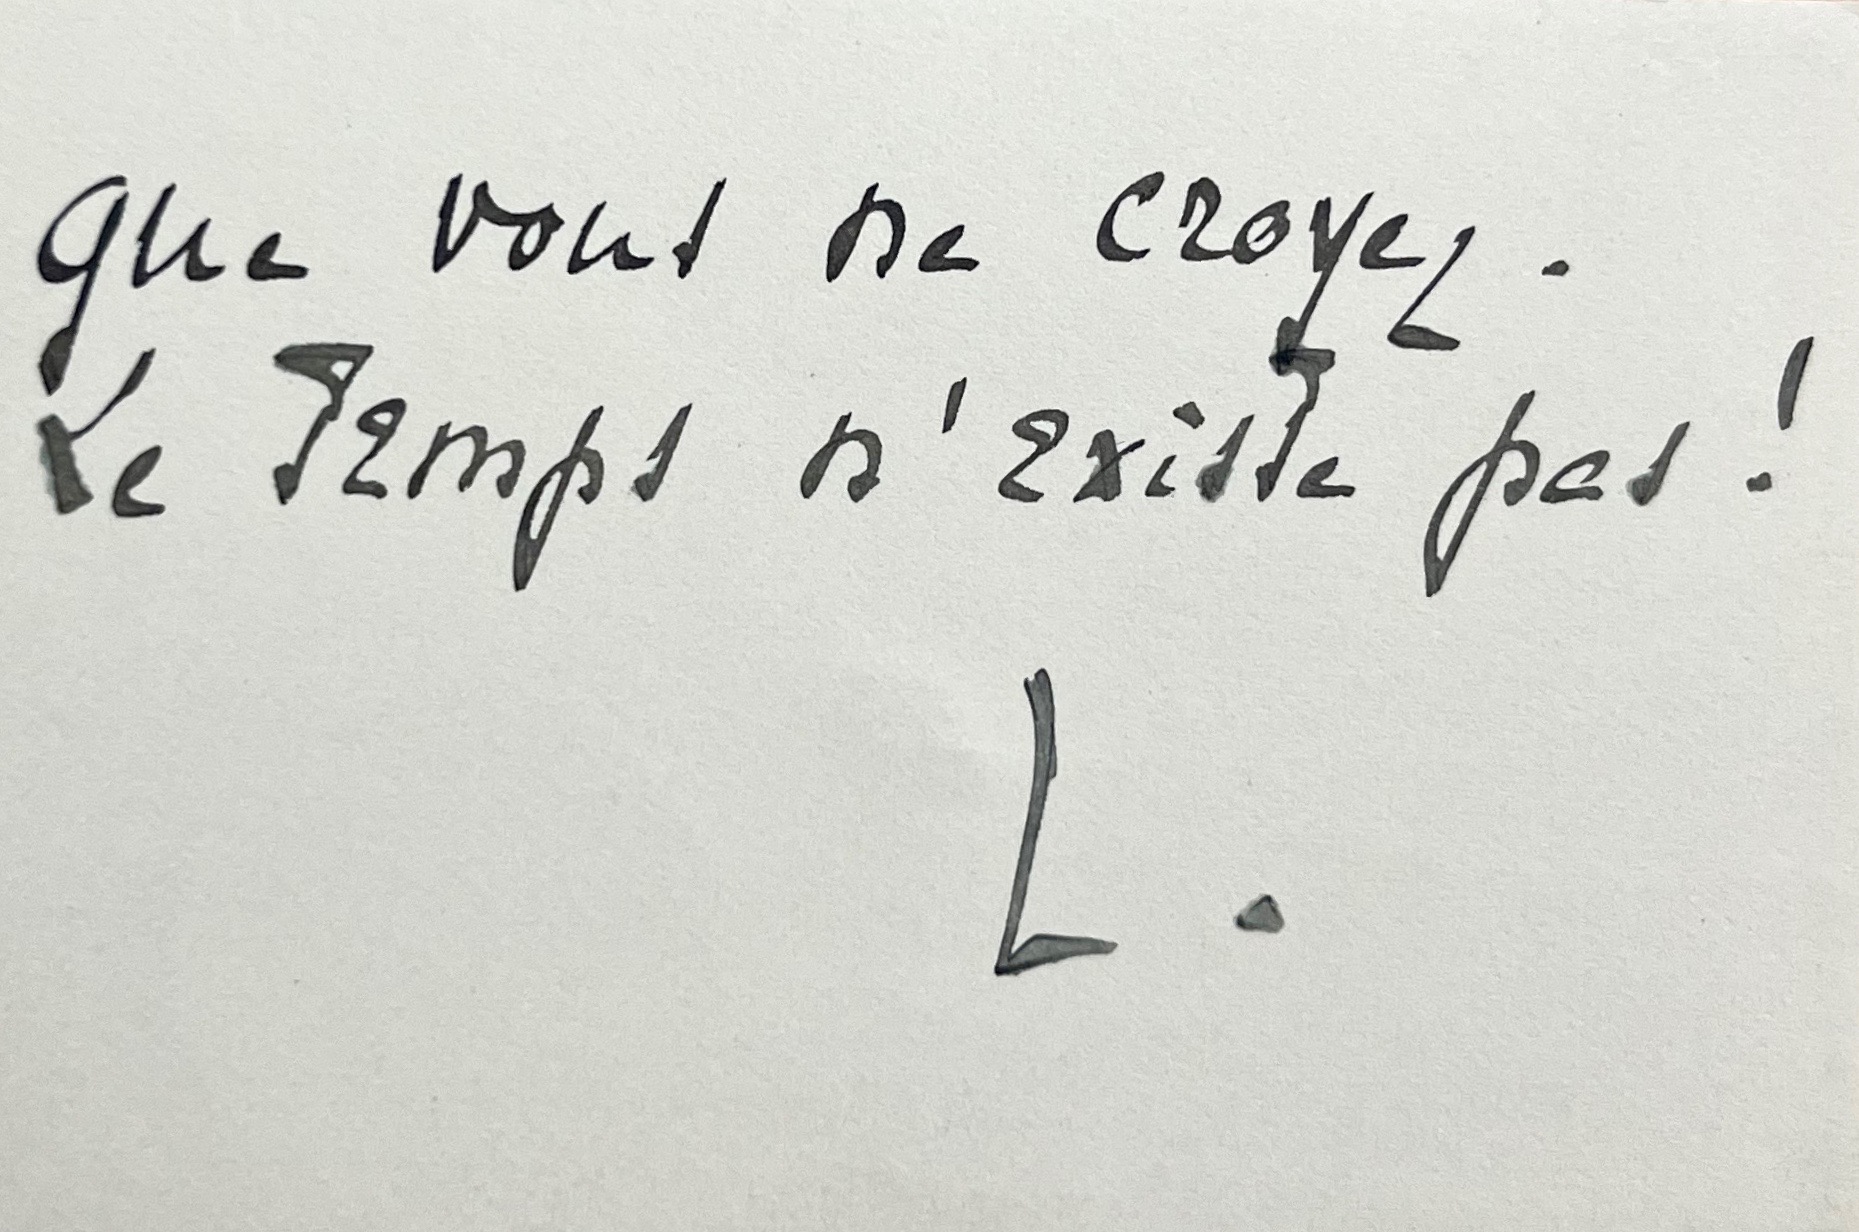 que vous ne croyez.
Le Temps n'existe pas!
L.